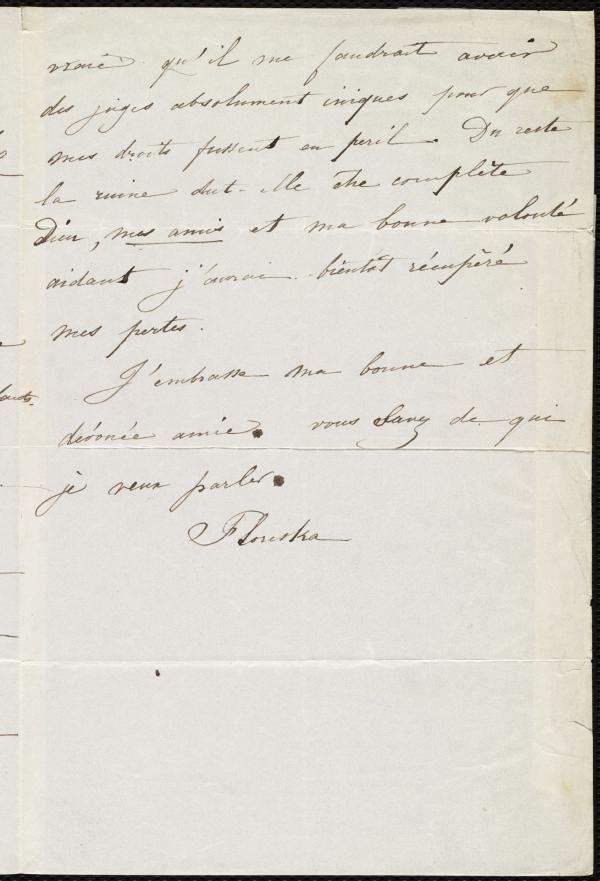 vraie qu'il me faudrait avoir
des juges absolument iniques pour que
mes droits fussent en peril. Du reste
la ruine dut-elle être complète
Dieu, mes amis et ma bonne volonté
aidant j'aurai bientôt récupéré
mes pertes.
J'embrasse ma bonne et
dévouée amie. vous savez de qui
je veux parler.
Floriska